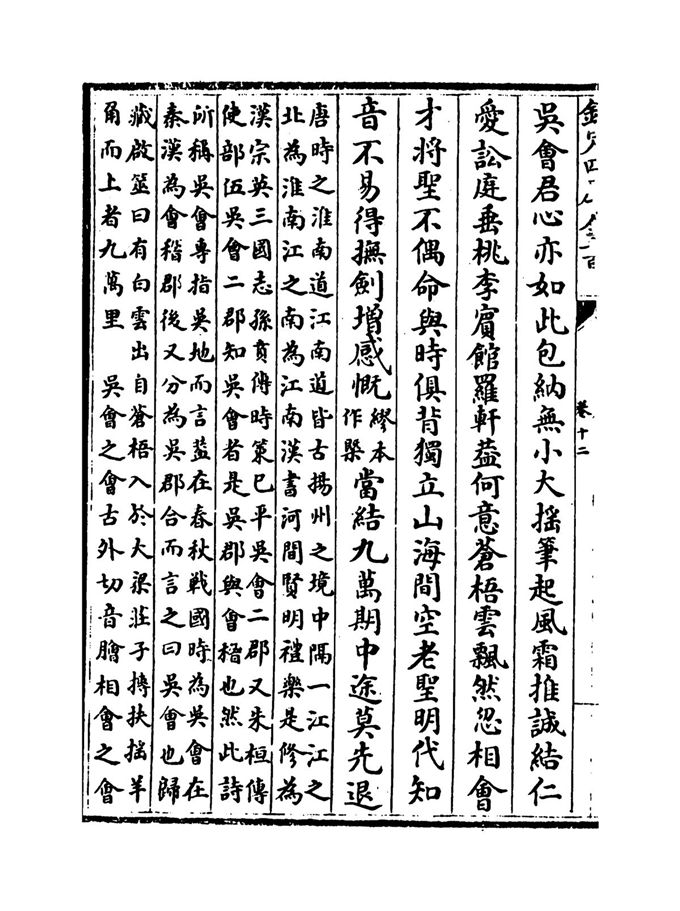 卷十二
吳會君心亦如此包納無小大揺筆起風霜推誠結仁
愛訟庭垂桃李賓館羅軒葢何意蒼梧雲飄然忽相會
才將聖不偶命與時俱背獨立山海間空老聖明代知
音不易得撫劍增感慨繆本作槩當結九萬期中途莫先退
唐時之淮南道江南道皆古揚州之境中隔一江江之
北為淮南江之南為江南漢書河間賢明禮樂是修為
漢宗英三國志孫賁傳時策已平吳會二郡又朱桓傳
使部伍吳會二郡知吳會者是吳郡與會稽也然此詩
所稱吳會專指吳地而言葢在春秋戰國時為吳會在
秦漢為會稽郡後又分為吳郡合而言之曰吳會也歸
藏啟筮曰有白雲出自蒼梧入於大梁莊子摶扶揺羊
角而上者九萬里　吳會之會古外切音膾相會之會